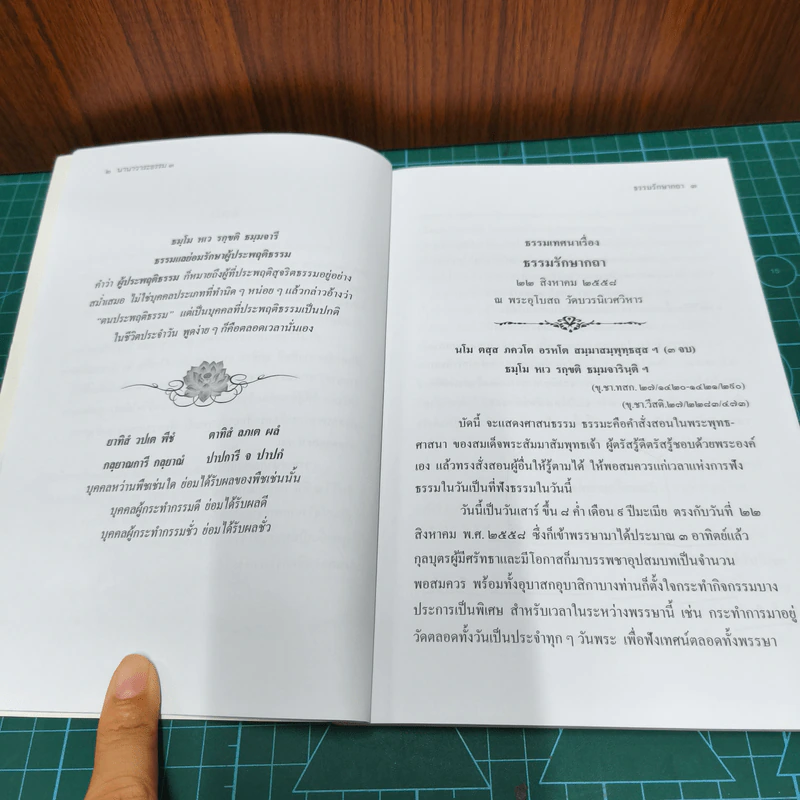 ๒ นานาวาระธรรม ๓
ธมฺโม หเว รกฺขติ ธมฺมจารี
ธรรมแลย่อมรักษาผู้ประพฤติธรรม
คำว่า ผู้ประพฤติธรรม ก็หมายถึงผู้ที่ประพฤติสุจริตธรรมอยู่อย่าง
สม่ำเสมอ ไม่ใช่บุคคลประเภทที่ทำนิด ๆ หน่อย ๆ แล้วกล่าวอ้างว่า
“ตนประพฤติธรรม” แต่เป็นบุคคลที่ประพฤติธรรมเป็นปกติ
ในชีวิตประจำวัน พูดง่าย ๆ ก็คือตลอดเวลานั่นเอง
ยาทิสํ วปเต พีชํ ตาทิสํ ลภเต ผลํ
กลฺยาณการี กลฺยาณํ ปาปการี จ ปาปกํ
บุคคลหว่านพืชเช่นใด ย่อมได้รับผลของพืชเช่นนั้น
บุคคลผู้กระทำกรรมดี ย่อมได้รับผลดี
บุคคลผู้กระทำกรรมชั่ว ย่อมได้รับผลชั่ว
ธรรมรักษากถา ๓
ธรรมเทศนาเรื่อง
ธรรมรักษากถา
๒๒ สิงหาคม ๒๕๕๘
ณ พระอุโบสถ วัดบวรนิเวศวิหาร
นโม ตสฺส ภควโต อรหโต สมฺมาสมฺพุทฺธสฺส ฯ (๓ จบ)
ธมฺโม หเว รกฺขติ ธมฺมจารินฺติ ฯ
(ขุ.ชา.ทสก.๒๗/๑๔๒๐-๑๔๒๑/๒๙๐)
(ขุ.ชา.วีสติ.๒๗/๒๒๘๓/๔๗๓)
บัดนี้ จะแสดงศาสนธรรม ธรรมะคือคำสั่งสอนในพระพุทธ-
ศาสนา ของสมเด็จพระสัมมาสัมพุทธเจ้า ผู้ตรัสรู้ดีตรัสรู้ชอบด้วยพระองค์
เอง แล้วทรงสั่งสอนผู้อื่นให้รู้ตามได้ ให้พอสมควรแก่เวลาแห่งการฟัง
ธรรมในวันเป็นที่ฟังธรรมในวันนี้
วันนี้เป็นวันเสาร์ ขึ้น ๘ ค่ำ เดือน ๙ ปีมะเมีย ตรงกับวันที่ ๒๒
สิงหาคม พ.ศ. ๒๕๕๘ ซึ่งก็เข้าพรรษามาได้ประมาณ ๓ อาทิตย์แล้ว
กุลบุตรผู้มีศรัทธาและมีโอกาสก็มาบรรพชาอุปสมบทเป็นจำนวน
พอสมควร พร้อมทั้งอุบาสกอุบาสิกาบางท่านก็ตั้งใจกระทำกิจกรรมบาง
ประการเป็นพิเศษ สำหรับเวลาในระหว่างพรรษานี้ เช่น กระทำการมาอยู่
วัดตลอดทั้งวันเป็นประจำทุก ๆ วันพระ เพื่อฟังเทศน์ตลอดทั้งพรรษา